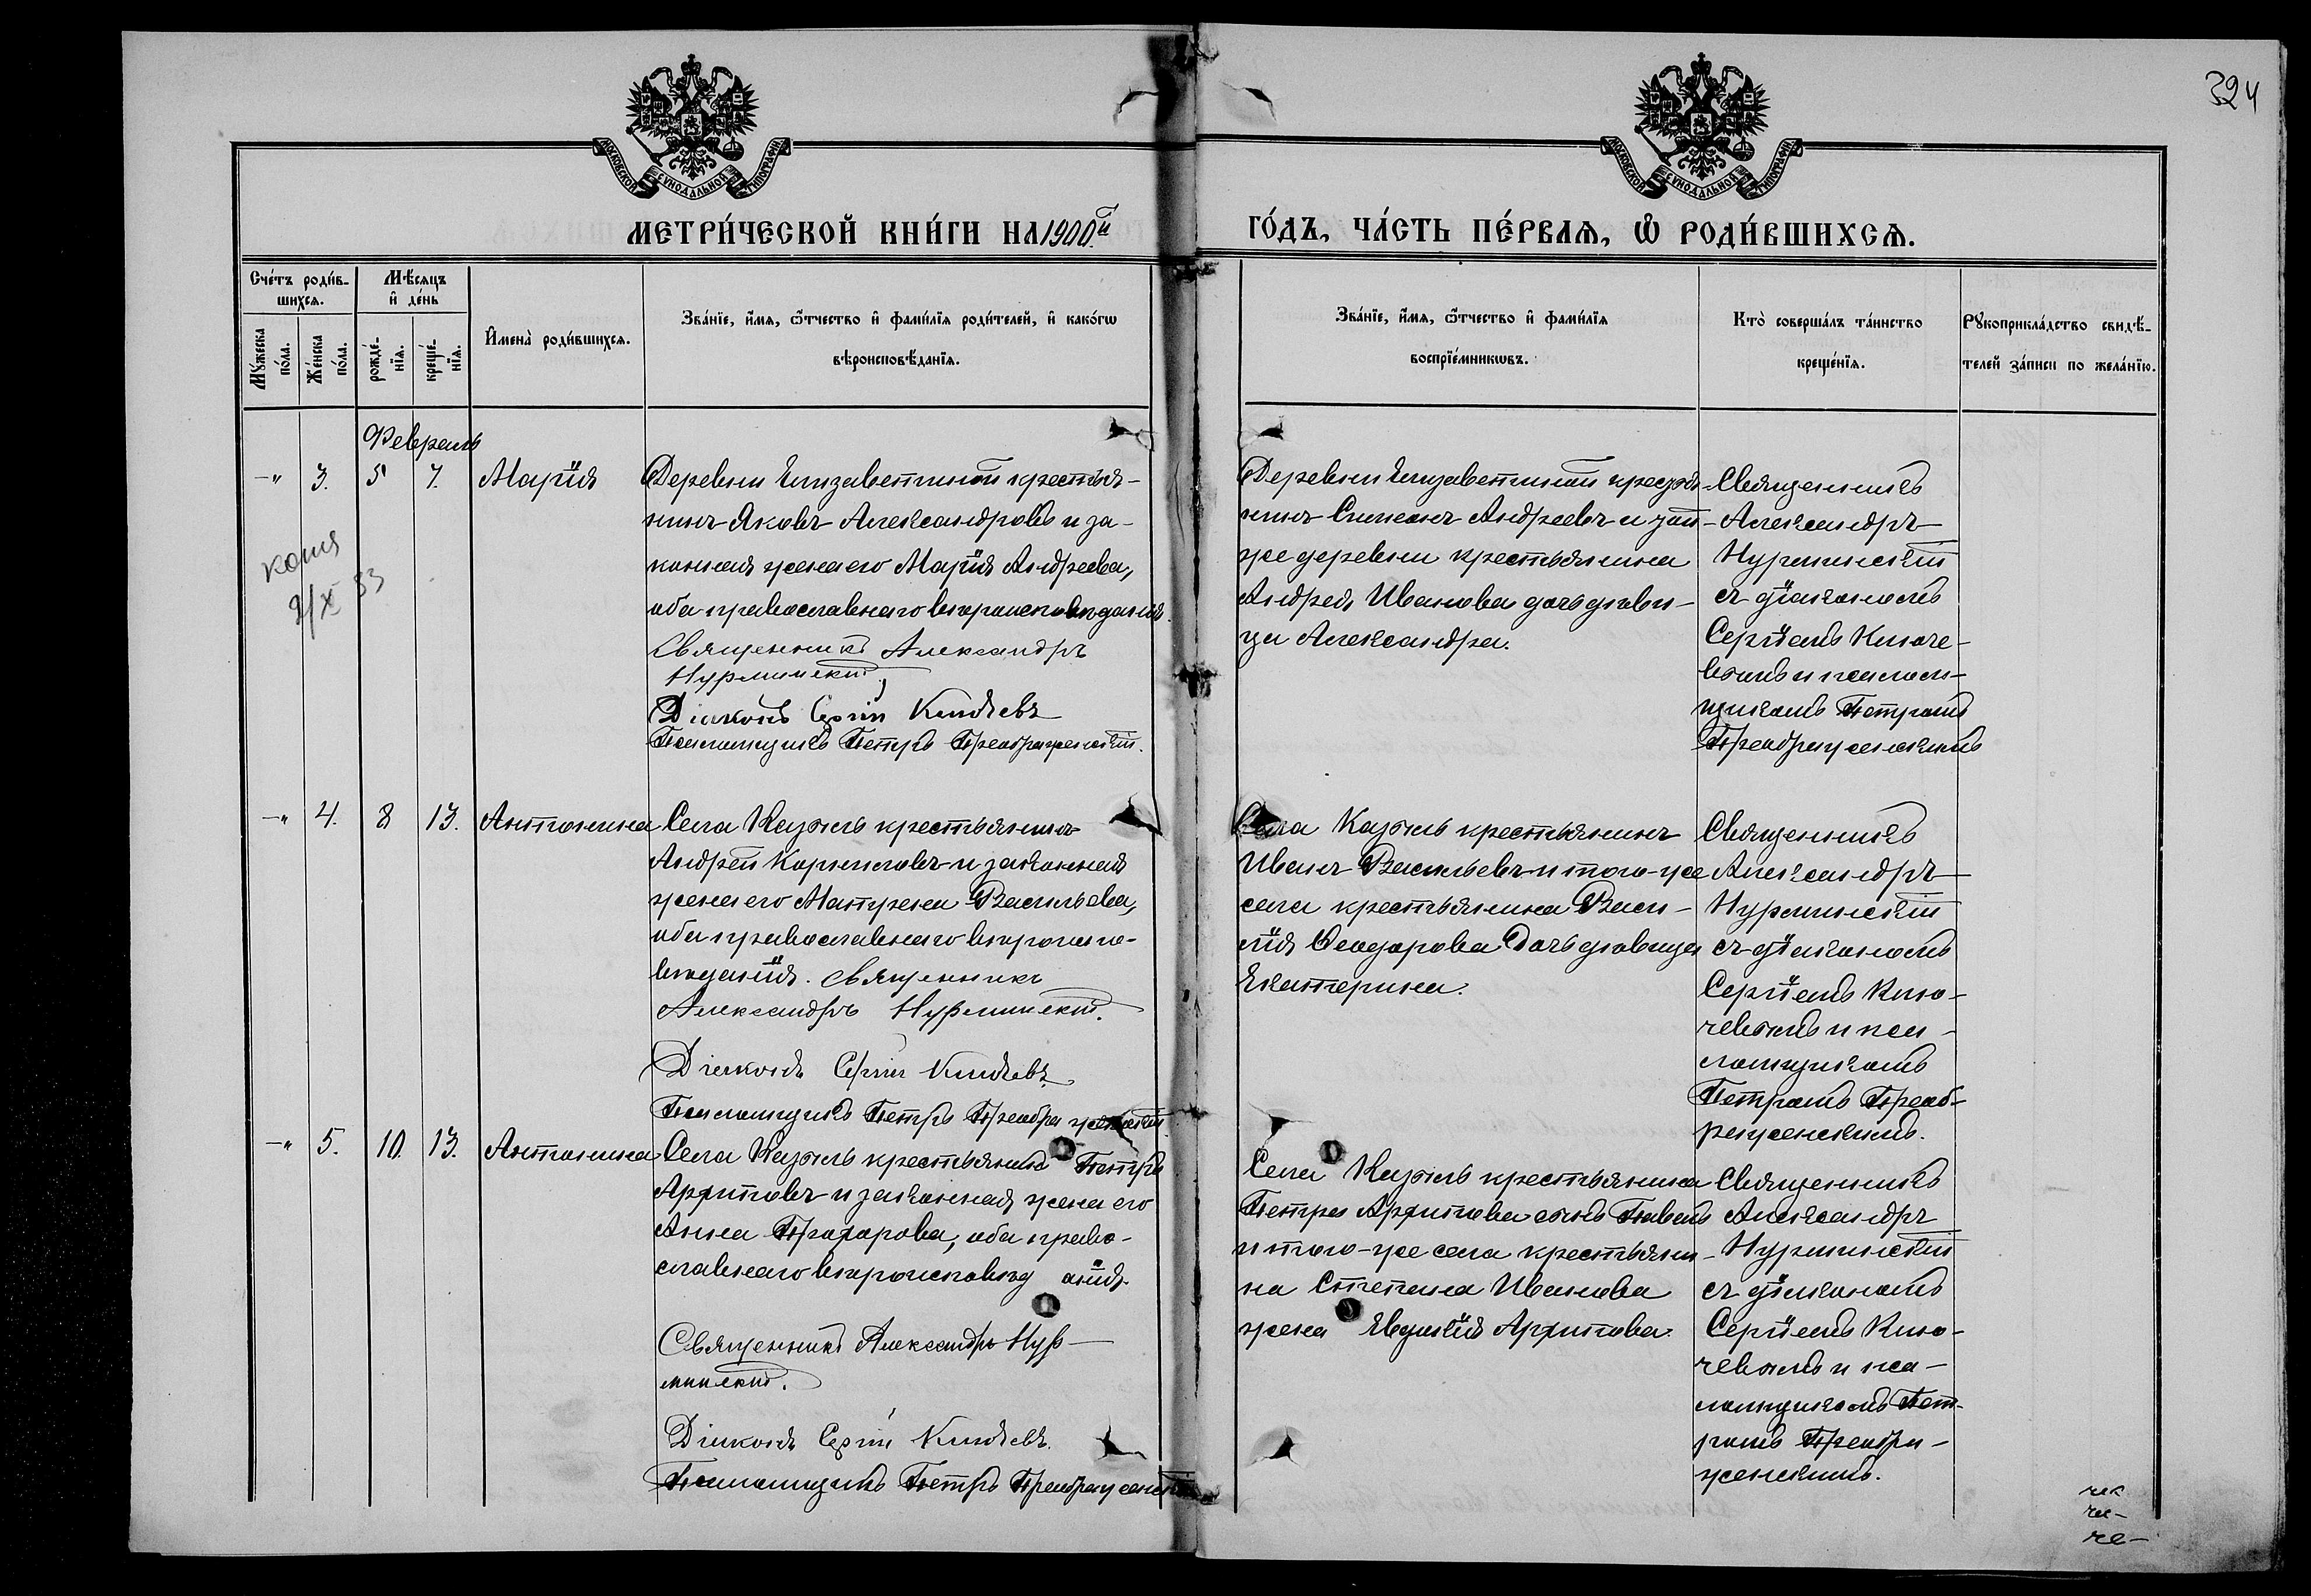 324
МОСКОВСКОЙ СѴНОДАЛЬНОЙ ТИПОГРАФІИ
МОСКОВСКОЙ СѴНОДАЛЬНОЙ ТИПОГРАФІИ
МЕТРИ́ЧЕСКОЙ КНИ́ГИ НА 1900.й
ГО́ДЪ, ЧА́СТЬ ПЕ́РВАѦ, Ѽ РОДИ́ВШИХСѦ.
Сче́тъ роди́в-
шихсѧ.
Мꙋ́жеска
по́ла.
Же́нска
по́ла.
Мѣ́сѧцъ
и҆ де́нь
рожде́-
нїѧ.
креще́-
нїѧ.
И҆мена̀ роди́вшихсѧ.
Зва́нїе, и҆́мѧ, ѻ҆́тчество и҆ фами́лїѧ роди́телей, и҆ како́гѡ
вѣроисповѣ́данїѧ.
Зва́нїе, и҆́мѧ, ѻ҆́тчество и҆ фами́лїѧ
воспрїе́мникѡвъ.
Кто̀ соверша́лъ та́инство
креще́нїѧ.
Рꙋкоприкла́дство свидѣ́-
телей за́писи по жела́нїю.
Февраль
-„ 3. 5 7. Марія
Деревни Елизаветиной крестья-
нинъ Яковъ Александровъ и за-
конная жена его Марія Андреева,
оба православнаго вѣроисповѣданія.
Священникъ Александръ
Нурминскій
Діаконъ Сергій Ключевъ
Псаломщикъ Петръ Преображенскій.
Деревни Елизаветиной кресть
нинъ Симеонъ Андреевъ и той-
же деревни крестьянина
Андрея Иванова дочь дѣви-
ца Александра.
Священникъ
Александръ
Нурминскій
съ діакономъ
Сергіемъ Ключе-
вымъ и псалом-
щикомъ Петромъ
Преображенскимъ
копія
2/X 53
-„ 4. 8 13. Антонина
Села Кажиль крестьянинъ
Андрей Корниловъ и законная
жена его Матрена Васильева,
оба православнаго вѣроиспо-
вѣданія. Священникъ
Александръ Нурминскій.
Діаконъ Сергій Ключевъ
Псаломщикъ Петръ Преображенскій
Села Кажиль крестьянинъ
Иванъ Васильевъ и того-же
села крестьянина Васи-
лія Ѳеодорова дочь дѣвица
Екатерина.
Священникъ
Александръ
Нурминскій
съ діакономъ
Сергіемъ Клю-
чевымъ и пса-
ломщикомъ
Петромъ Преоб-
раженскимъ.
-„ 5. 10. 13. Антонина
Села Кажиль крестьянинъ Петръ
Архиповъ и законная жена его
Анна Прохорова, оба право-
славнаго вѣроисповѣданія.
Священникъ Александръ Нур-
минскій.
Діаконъ Сергій Ключевъ.
Псаломщикъ Петръ Преображенскій
Села Кажиль крестьянина
Петра Архипова сынъ Павелъ
и того-же села крестьяни-
на Степана Иванова
жена Евдокія Архипова.
Священникъ
Александръ
Нурминскій
съ діакономъ
Сергіемъ Клю-
чевымъ и пса-
ломщикомъ Пет-
ромъ Преобра-
женскимъ.